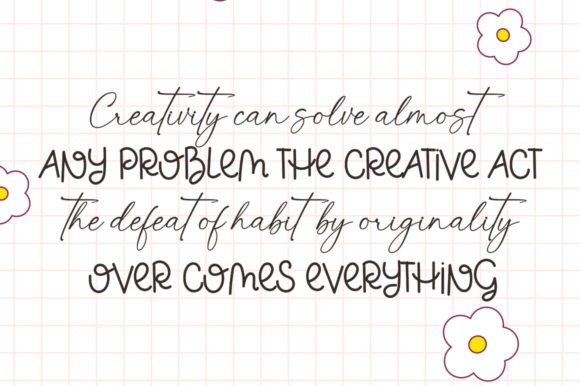 Creativity can solve almost
ANY PROBLEM THE CREATIVE ACT
the defeat of habit by originality
OVER COMES EVERYTHING